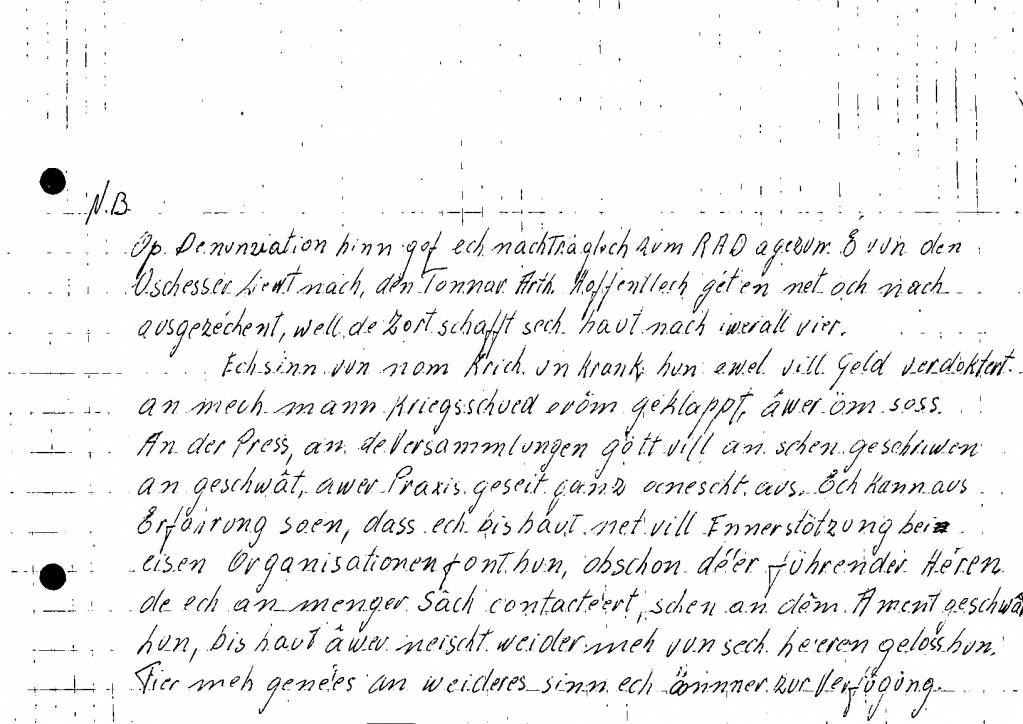 N.B.
Op Denunziation hinn gof ech nachträglech zum RAD agezun. E vun den
Uschesser liewt nach, den Tonnar Arth. Hoffentlech get en net och nach
ausgezéchent, well de Zort schafft sech haut nach iwerall vier.
Ech sinn vun nom Krich un krank, hun ewel vill Geld verdoktert
an mech mann Kriegsschued eröm geklappt, âwer öm soss.
An der Press, an de Versammlungen gött vill an schen geschriwen
an geschwât, awer Praxis geseit ganz anescht aus. Ech kann aus
Erfahrung soen, dass ech bis haut net vill Ennerstötzung bei
eisen Organisationen font hun, obschon déer führender Héren
de ech an menger Sâch contacteert, schen an dêm Ament geschwât
hun, bis haut âwer neischt weider meh vun sech heeren geloss hun.
Fier meh genees an weideres sinn ech ömmer zur Verfügöng.